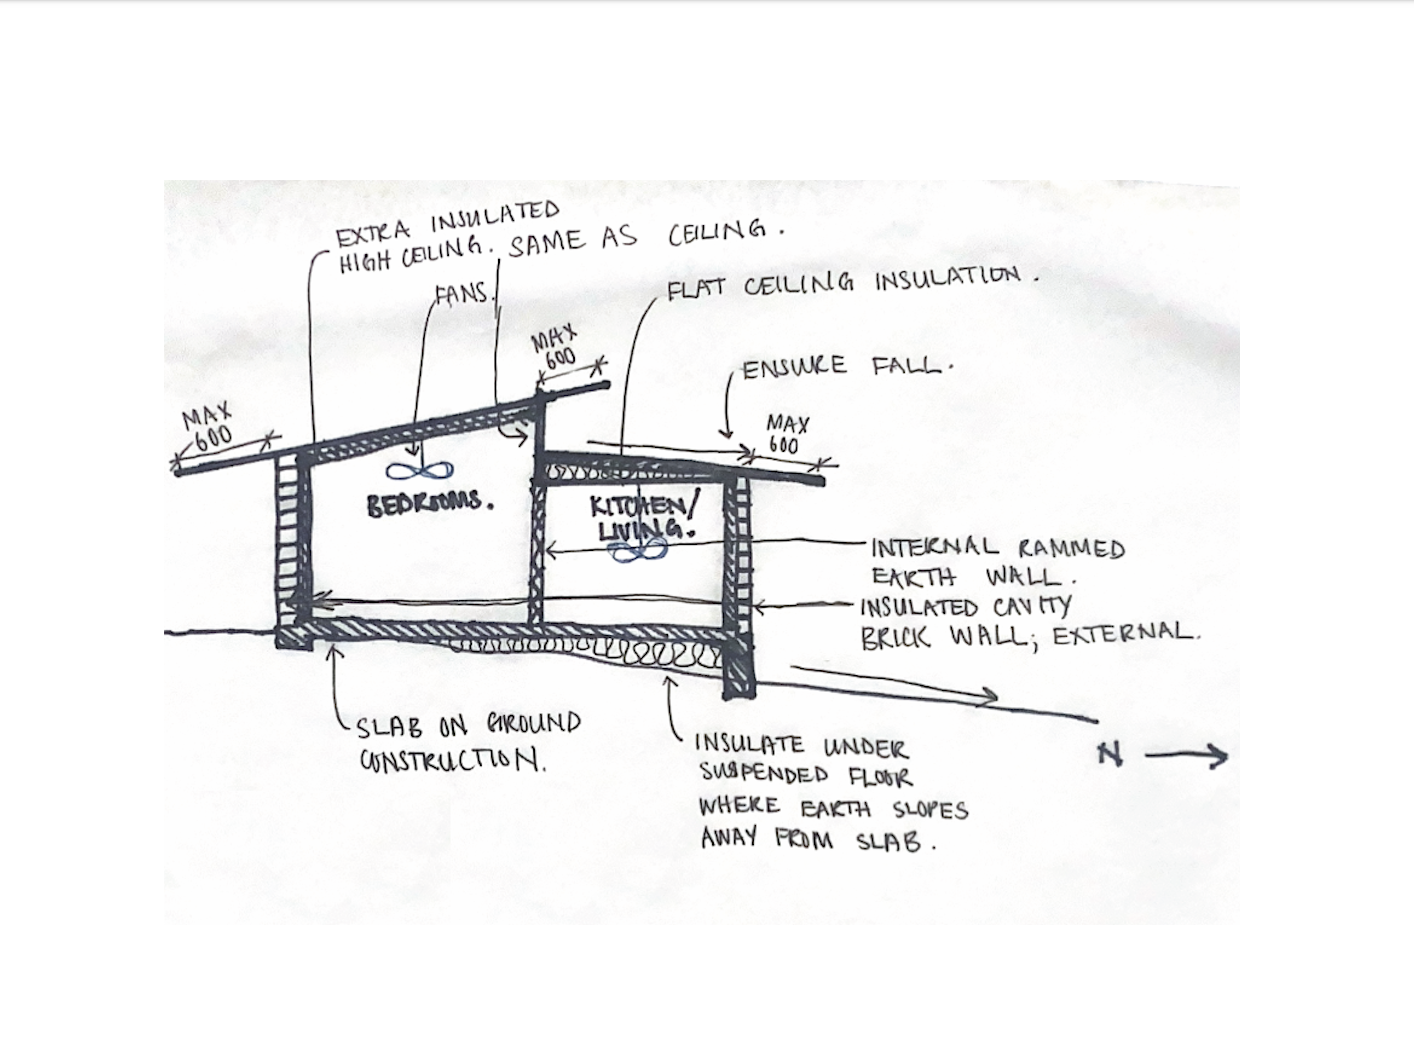 EXTRA INSULATED
HIGH CEILING.
SAME AS CEILING.
FANS.
FLAT CEILING INSULATION.
MAX
600
ENSURE FALL.
MAX
600
MAX
600
BEDROOMS.
KITCHEN/
LIVING.
INTERNAL RAMMED
EARTH WALL.
INSULATED CAVITY
BRICK WALL; EXTERNAL.
SLAB ON GROUND
CONSTRUCTION.
INSULATE UNDER
SUSPENDED FLOOR
WHERE EARTH SLOPES
AWAY FROM SLAB.
N